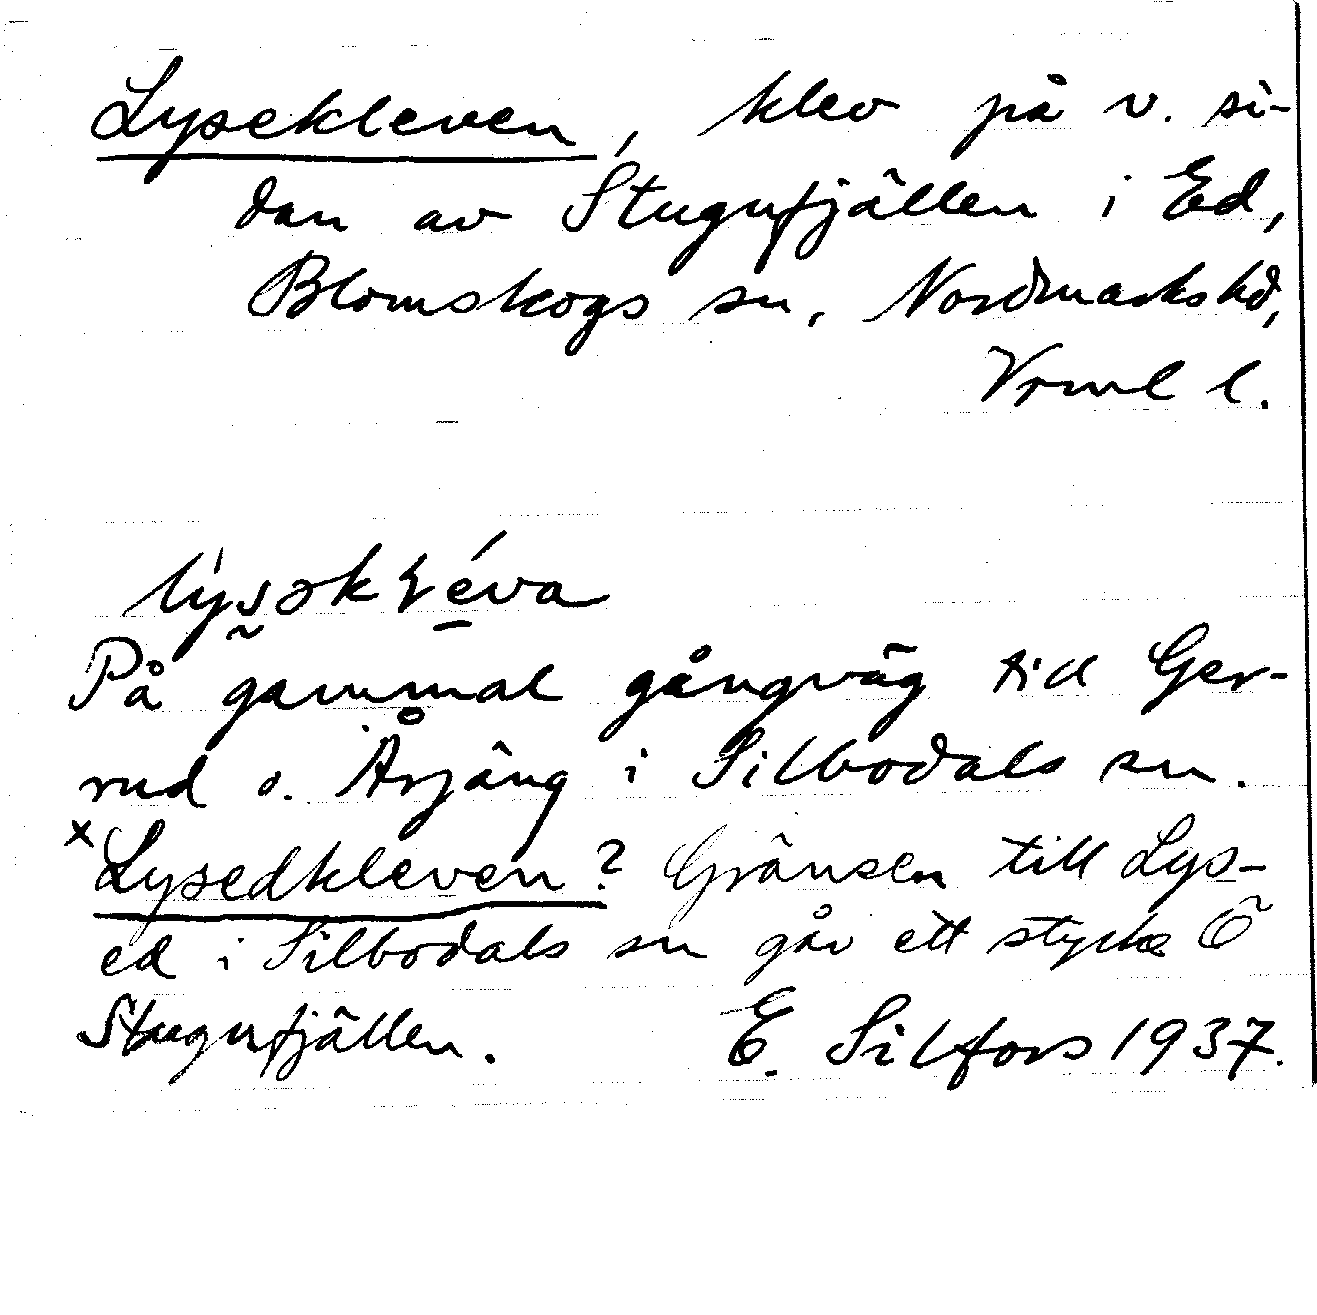 Lysekleven, klev på v. si-
dan av Stugufjällen i Ed,
Blomskogs sn, Nordmarks hd,
Vrml l.
På gammal gångväg till Ger-
rud o. Årjäng i Silbodals sn.
×Lysedkleven? Gränsen till Lys-
ed i Silbodals sn går ett stycke Ö
Stugufjällen. E. Silfors 1937.